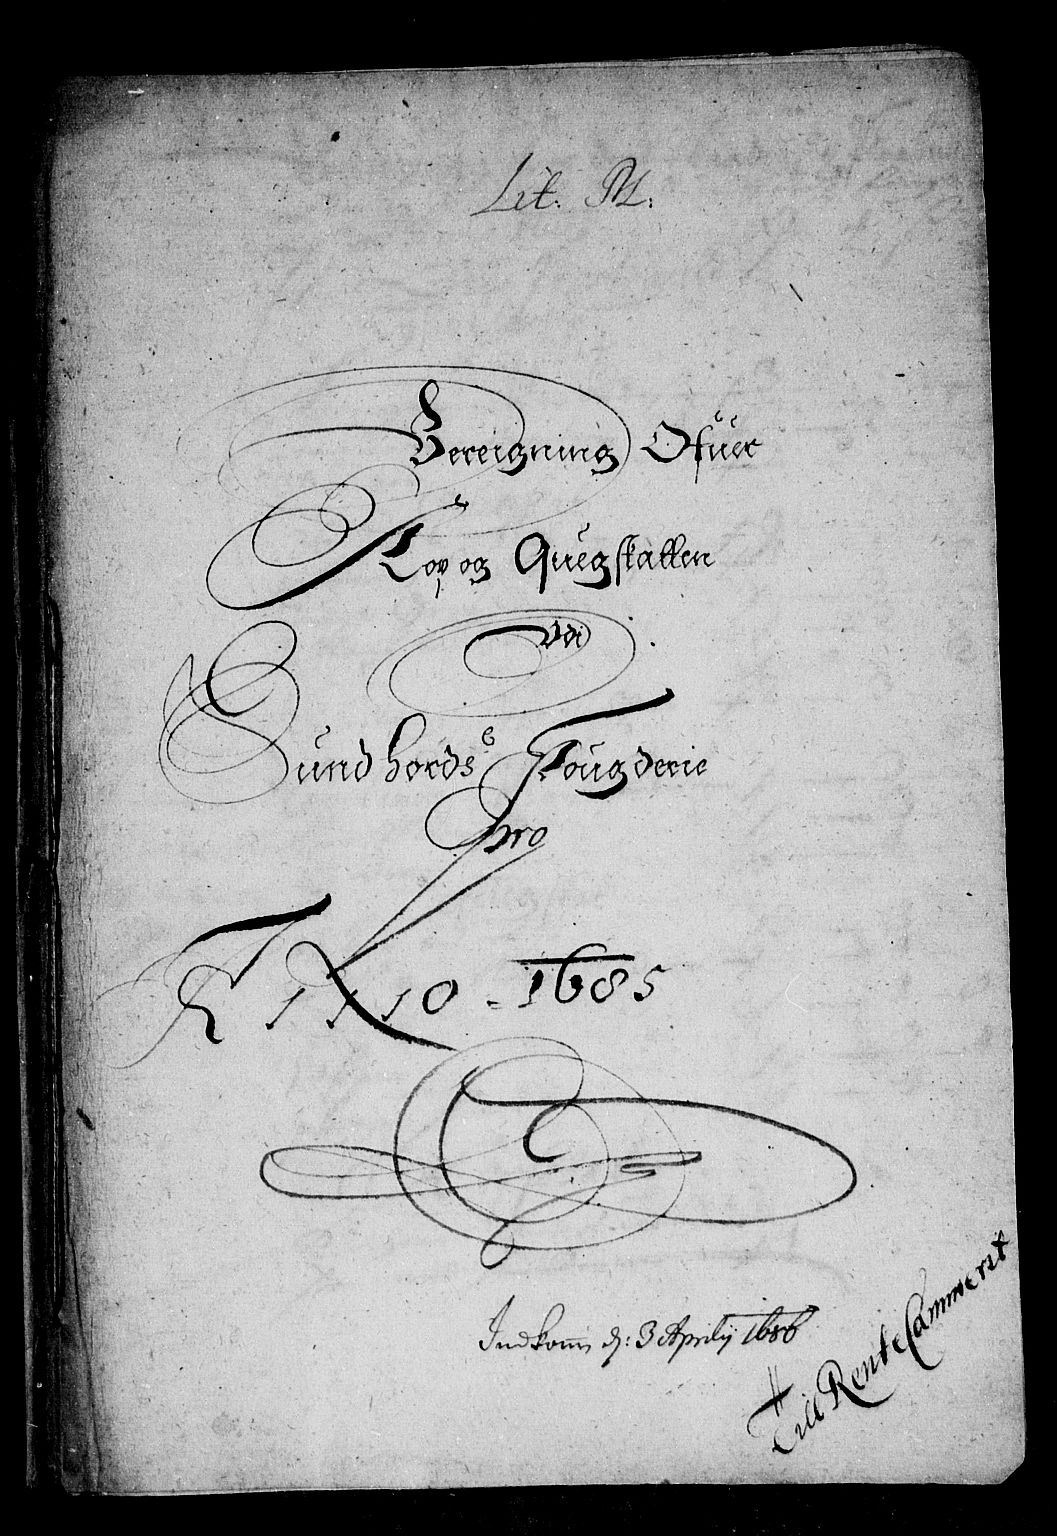 Lit. M.
Bereigning Ofuer
Kop og Quegskatten
Vdi
Sundhords Fougderie
Pro
A 1685
Indkom d: 3 Aprily 1686
Till Rente Cammerit